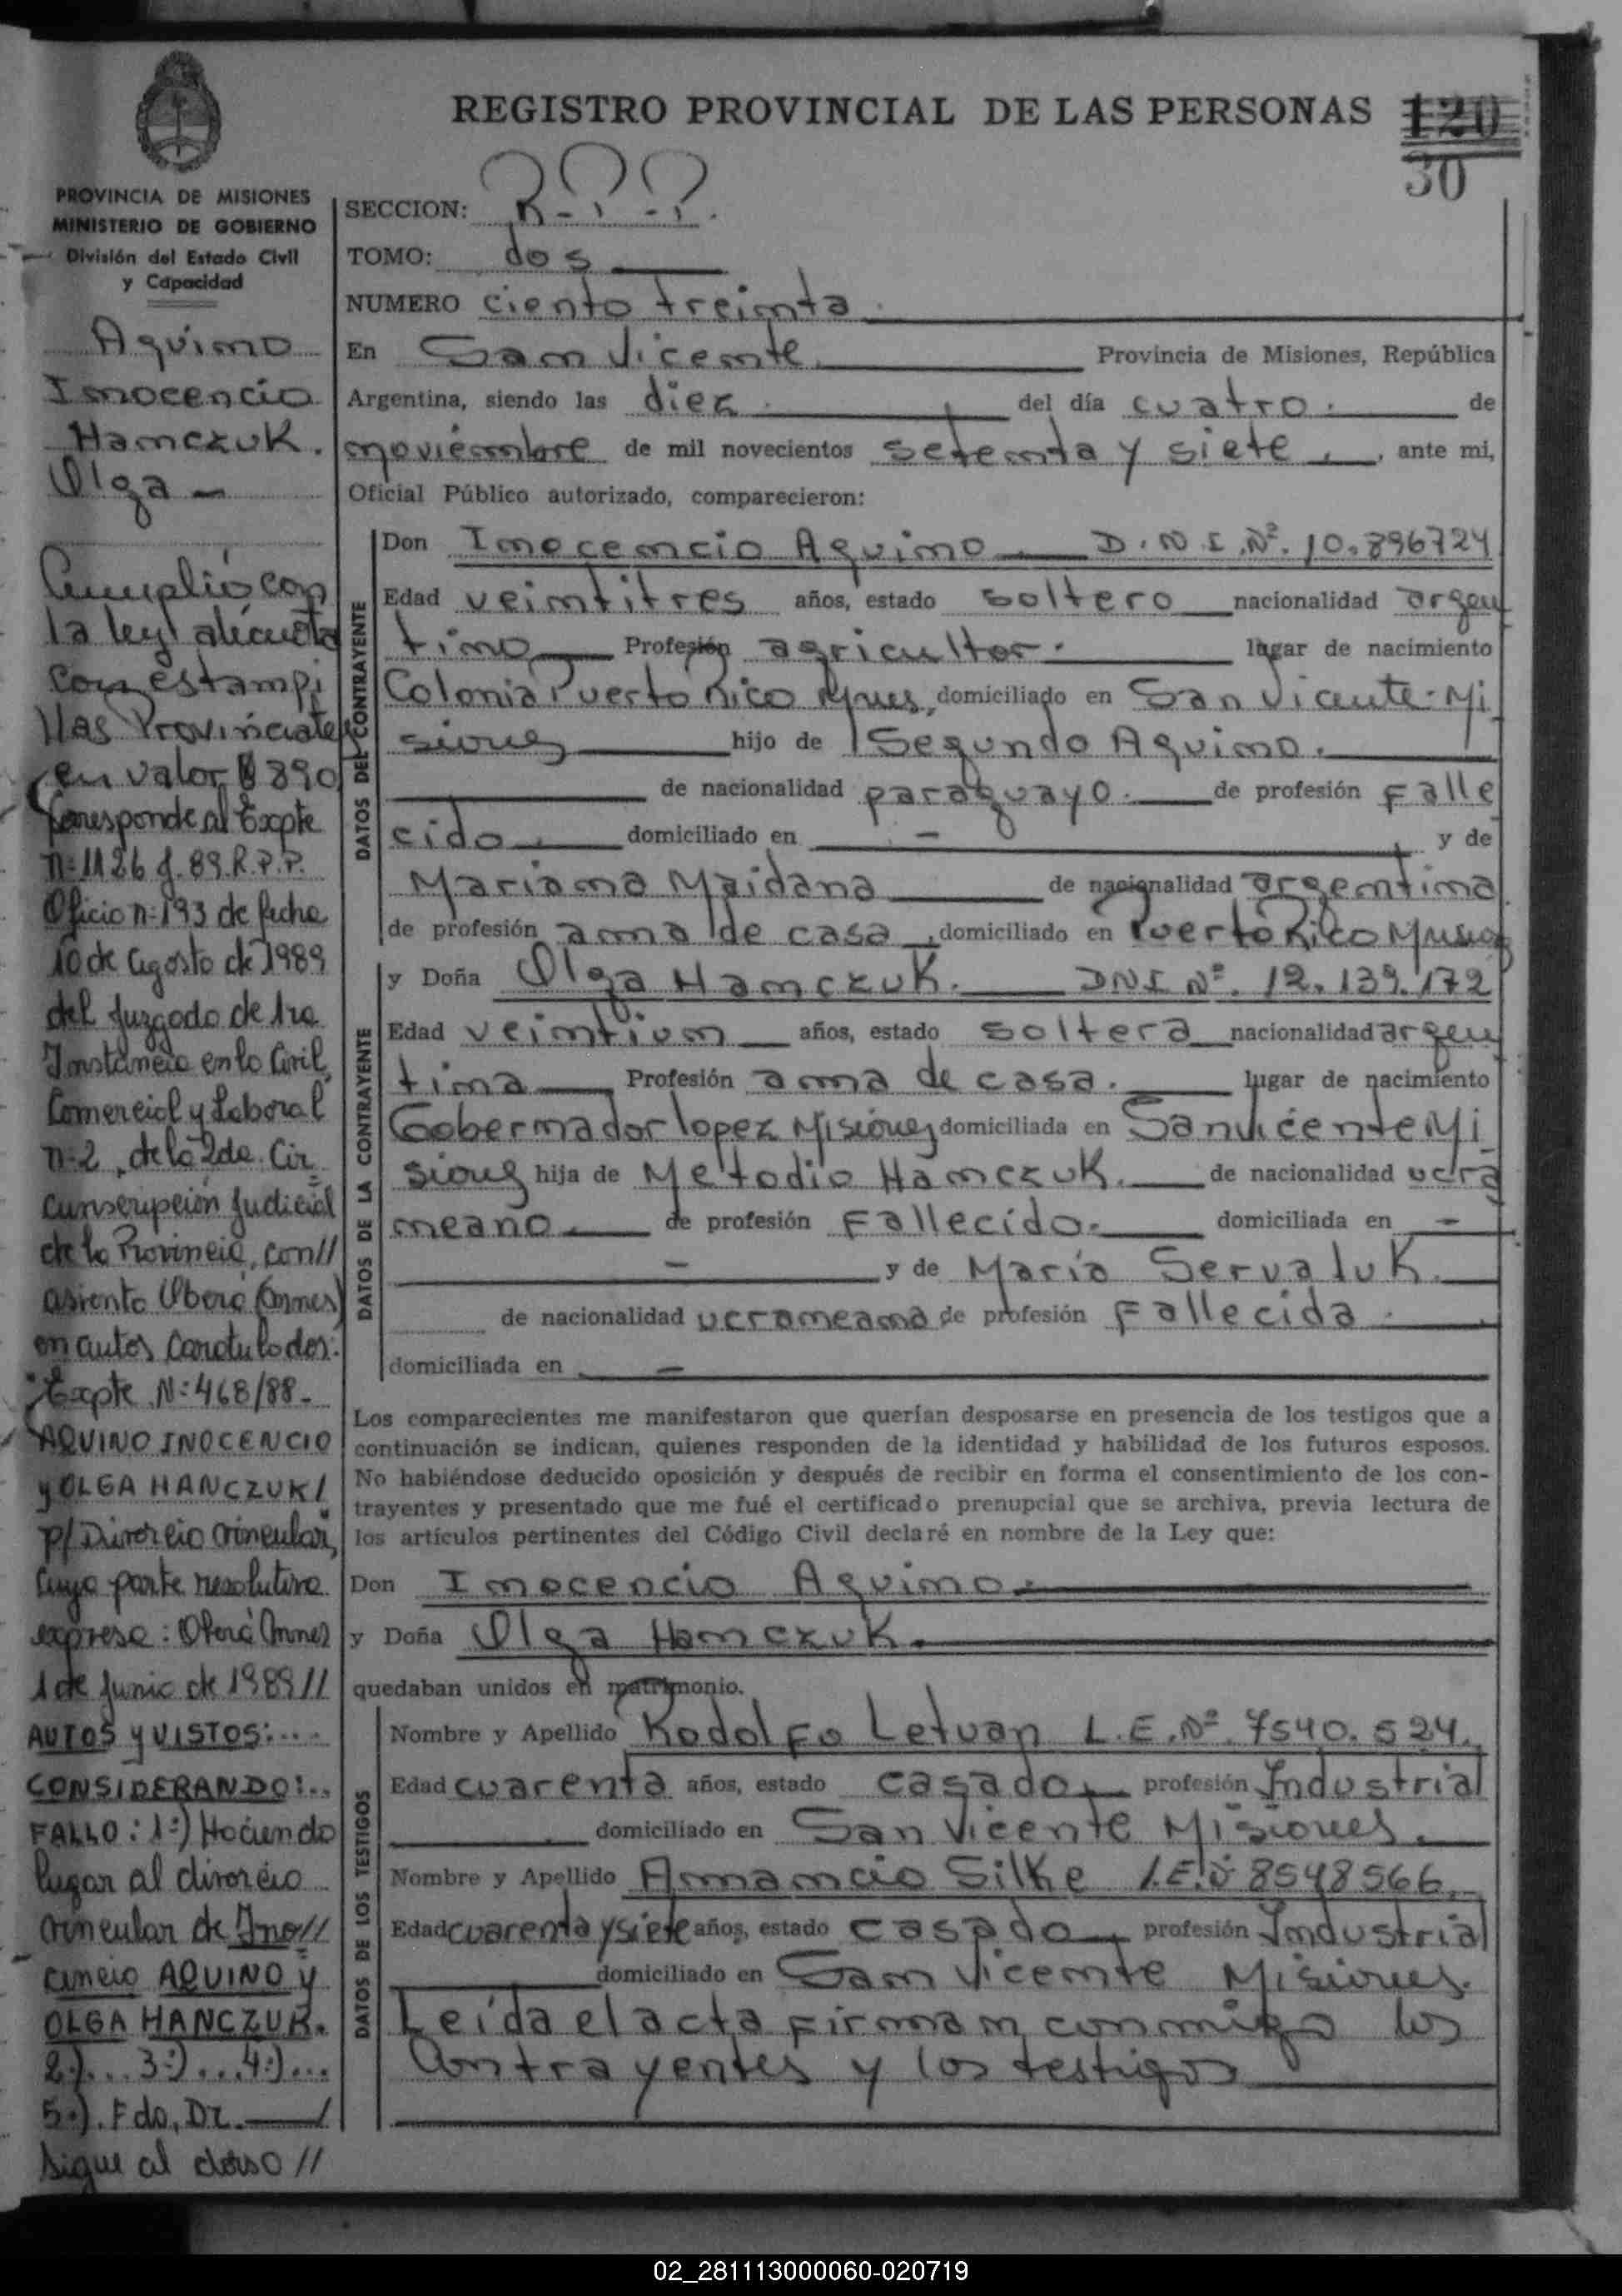 REGISTRO PROVINCIAL DE LAS PERSONAS
120
30
PROVINCIA DE MISIONES
MINISTERIO DE GOBIERNO
División del Estado Civil
y Capacidad
Aquino
Inocencio
Hanczuk.
Olga -
Cumplió con
la ley alícuota
con estampi
llas Provinciales
en valor $ 890
Corresponde al Expte
n: 1126 J. 89. R.P.P.
Oficio n: 193 de fecha
10 de agosto de 1989
del Juzgado de 1ra
Instancia en lo Civil,
Comercial y Laboral
n: 2, de la 2da. Cir
cunscripción Judicial
de la Provincia, con//
asiento Oberá (Mnes)
en autos Caratulados:
"Expte. N: 468/88 -
AQUINO INOCENCIO
y OLGA HANCZUK/
p/ Divorcio Vincular",
Cuya parte resolutiva
expresa: Oberá (Mnes)
1 de Junio de 1989//
AUTOS y VISTOS:....
CONSIDERANDO:..
FALLO: 1:) Haciendo
lugar al divorcio
vincular de Ino//
cencio AQUINO y
OLGA HANCZUK.
2:)... 3:)... 4:)...
5:). Fdo. Dr. /
Sigue al dorso //
SECCION: R.P.P.
TOMO: dos
NUMERO ciento treinta
En San Vicente Provincia de Misiones, República
Argentina, siendo las diez. del día cuatro. de
noviembre de mil novecientos setenta y siete, ante mi,
Oficial Público autorizado, comparecieron:
DATOS DEL CONTRAYENTE
Don Inocencio Aquino D.N.I. Nº. 10.896724
Edad veintitres años, estado soltero nacionalidad argen
tino Profesión agricultor. lugar de nacimiento
Colonia Puerto Rico Mnes, domiciliado en San Vicente - Mi
siones hijo de Segundo Aquino.
de nacionalidad paraguayo. de profesión Falle
cido. domiciliado en - y de
Mariana Maidana de nacionalidad argentina
de profesión ama de casa, domiciliado en Puerto Rico Misiones
DATOS DE LA CONTRAYENTE
y Doña Olga Hanczuk. DNI Nº. 12.139.172
Edad veintiun años, estado soltera nacionalidad argen
tina Profesión ama de casa. lugar de nacimiento
Gobernador Lopez Misiones domiciliada en San Vicente Mi
siones hija de Metodio Hanczuk. de nacionalidad ucra
neano. de profesión Fallecido. domiciliada en -
- y de Maria Servatuk.
de nacionalidad ucraneana de profesión Fallecida.
domiciliada en -
Los comparecientes me manifestaron que querían desposarse en presencia de los testigos que a
continuación se indican, quienes responden de la identidad y habilidad de los futuros esposos.
No habiéndose deducido oposición y después de recibir en forma el consentimiento de los con-
trayentes y presentado que me fué el certificado prenupcial que se archiva, previa lectura de
los artículos pertinentes del Código Civil declaré en nombre de la Ley que:
Don Inocencio Aquino.
y Doña Olga Hanczuk.
quedaban unidos en matrimonio.
DATOS DE LOS TESTIGOS
Nombre y Apellido Rodolfo Letuan L.E. Nº. 7540.524.
Edad cuarenta años, estado casado, profesión Industrial
domiciliado en San Vicente Misiones.
Nombre y Apellido Amancio Silke L.E. Nº 8548566.
Edad cuarenta y siete años, estado casado, profesión Industrial
domiciliado en San Vicente Misiones.
Leída el acta firman conmigo los
contrayentes y los testigos
02_281113000060-020719